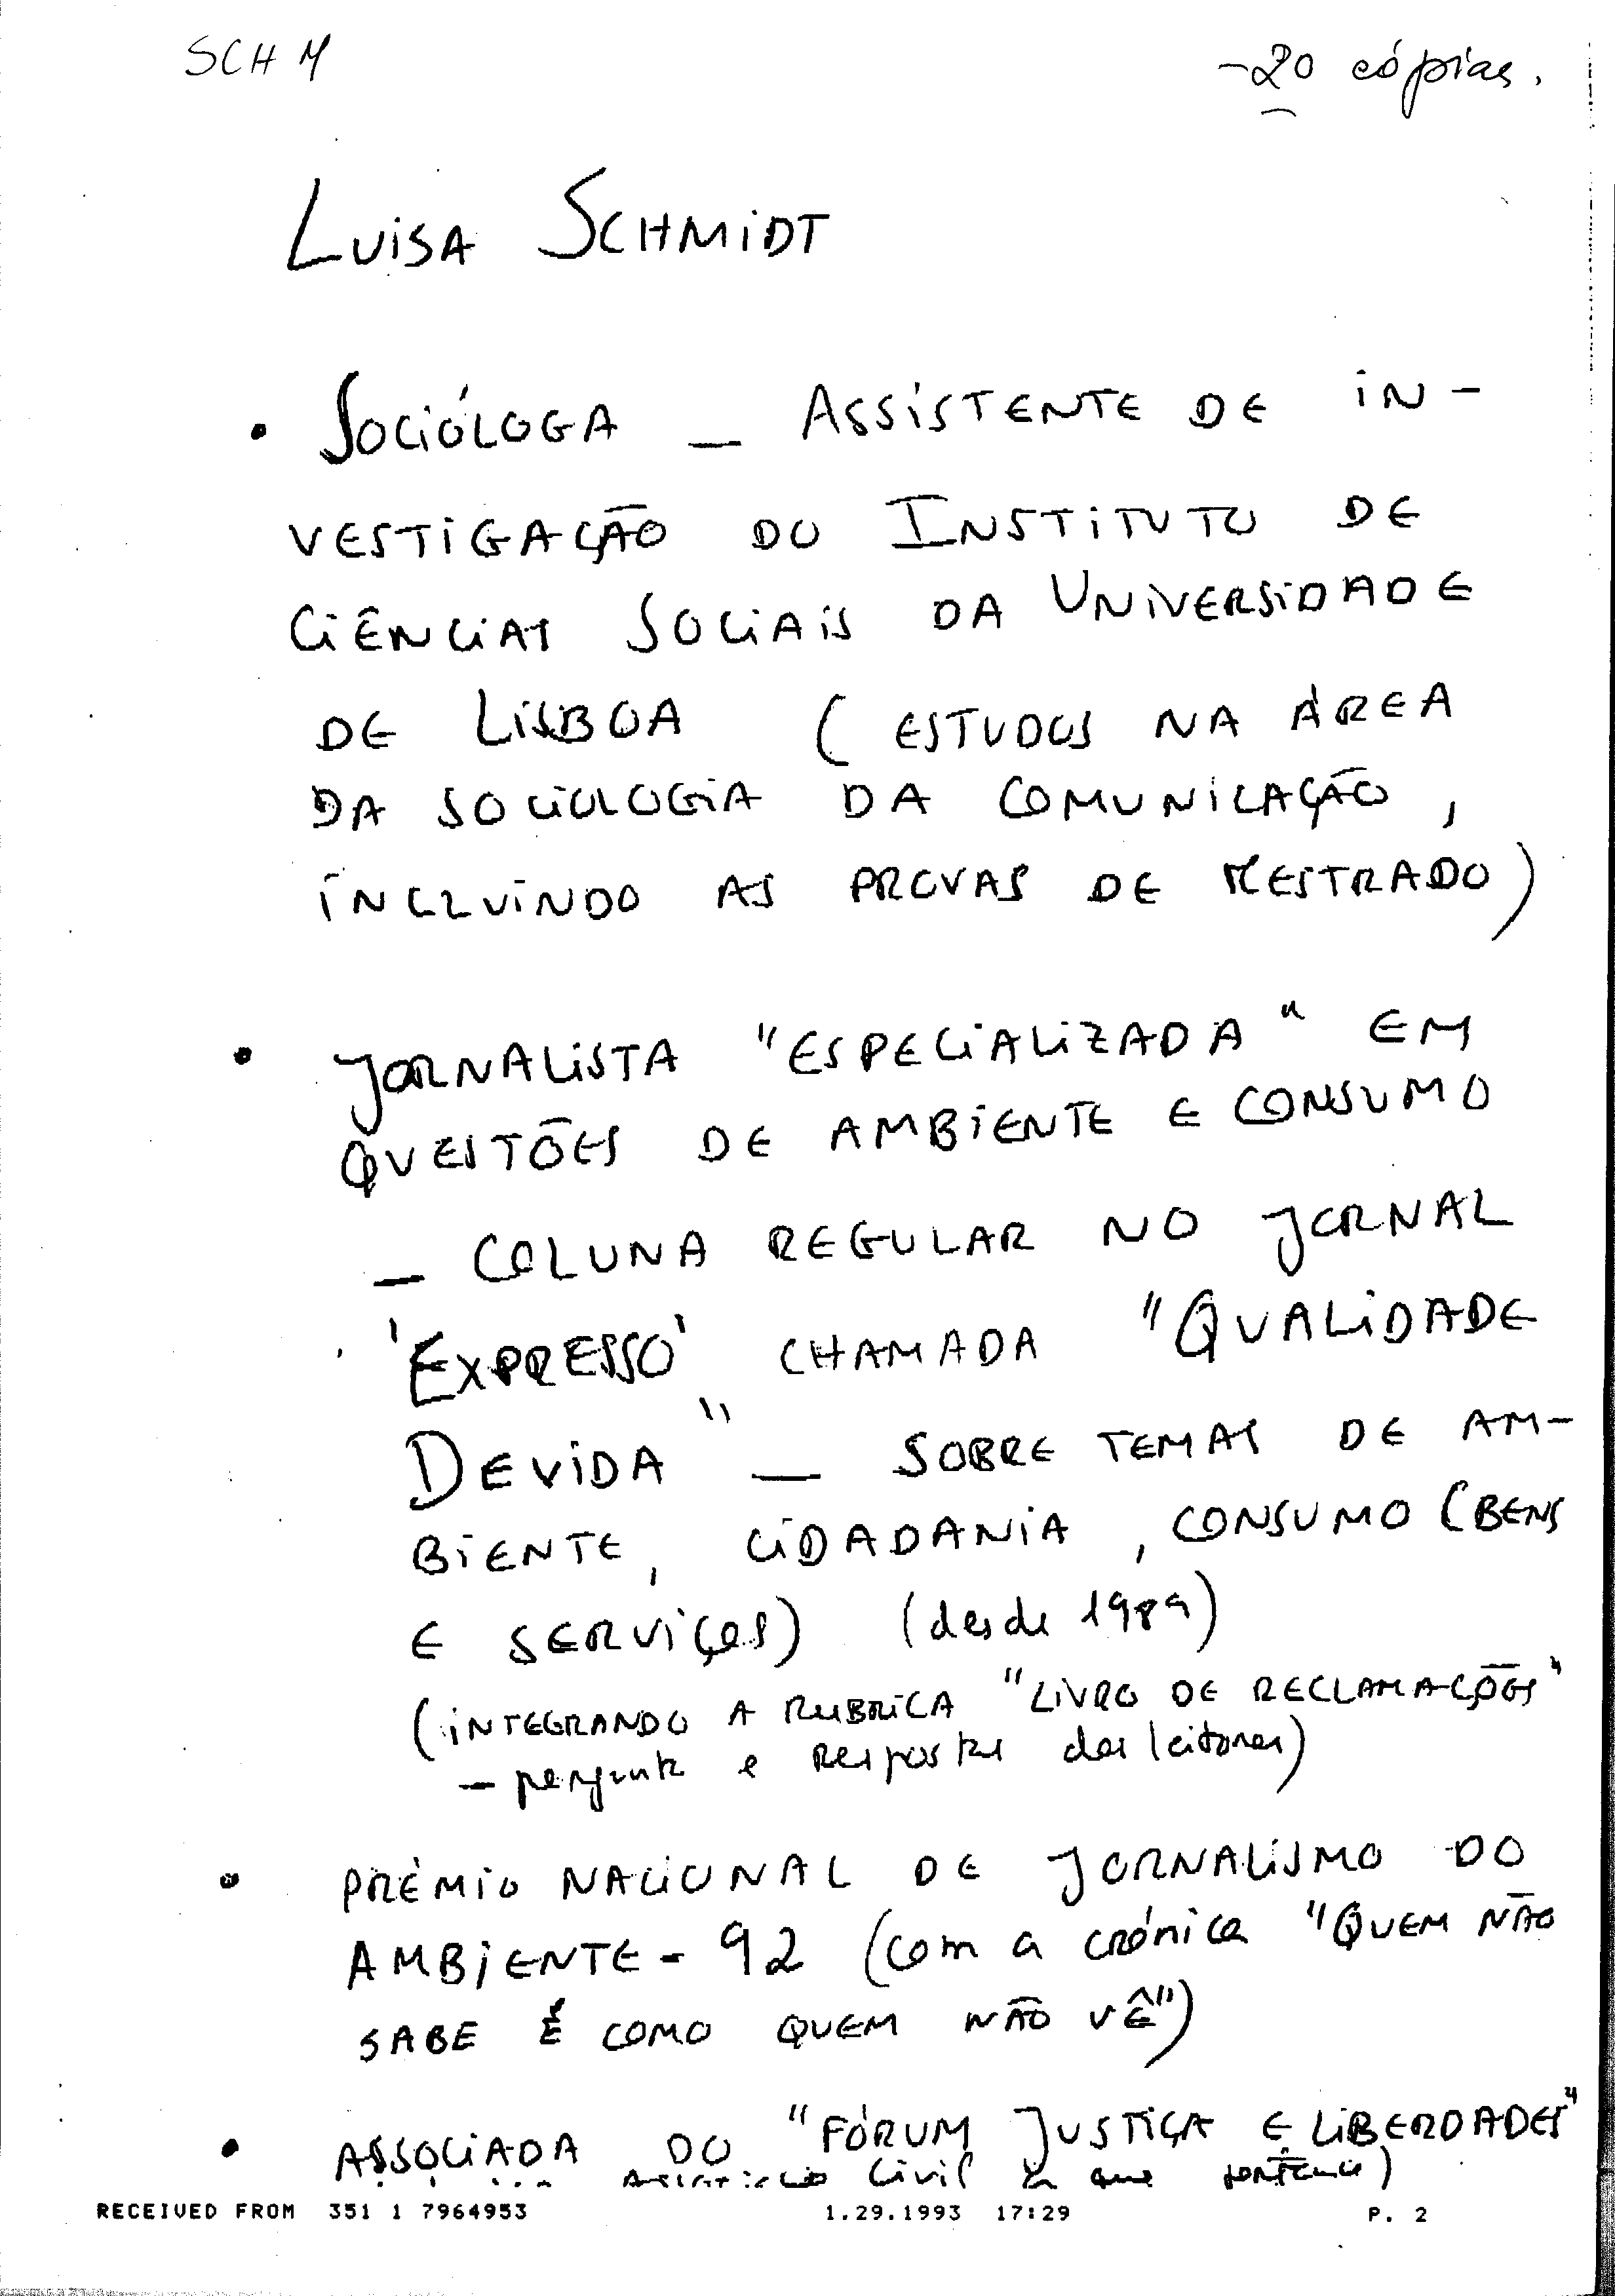 SCH M
-20 cópias.
LUISA SCHMIDT
• SOCIÓLOGA — ASSISTENTE DE IN-
VESTIGAÇÃO DO INSTITUTO DE
CIÊNCIAS SOCIAIS DA UNIVERSIDADE
DE LISBOA (ESTUDOS NA ÁREA
DA SOCIOLOGIA DA COMUNICAÇÃO,
INCLUINDO AS PROVAS DE MESTRADO)
• JORNALISTA "ESPECIALIZADA" EM
QUESTÕES DE AMBIENTE E CONSUMO
— COLUNA REGULAR NO JORNAL
'EXPRESSO' CHAMADA "QUALIDADE
DEVIDA" — SOBRE TEMAS DE AM-
BIENTE, CIDADANIA, CONSUMO (BENS
E SERVIÇOS) (desde 1989)
(INTEGRANDO A RUBRICA "LIVRO DE RECLAMAÇÕES"
— pergunta e Respostas dos leitores)
• PRÉMIO NACIONAL DE JORNALISMO DO
AMBIENTE - 92 (com a crónica "QUEM NÃO
SABE É COMO QUEM NÃO VÊ")
• ASSOCIADA DO "FÓRUM JUSTIÇA E LIBERDADES"
Civil a que
RECEIVED FROM 351 1 7964953 1.29.1993 17:29 P. 2